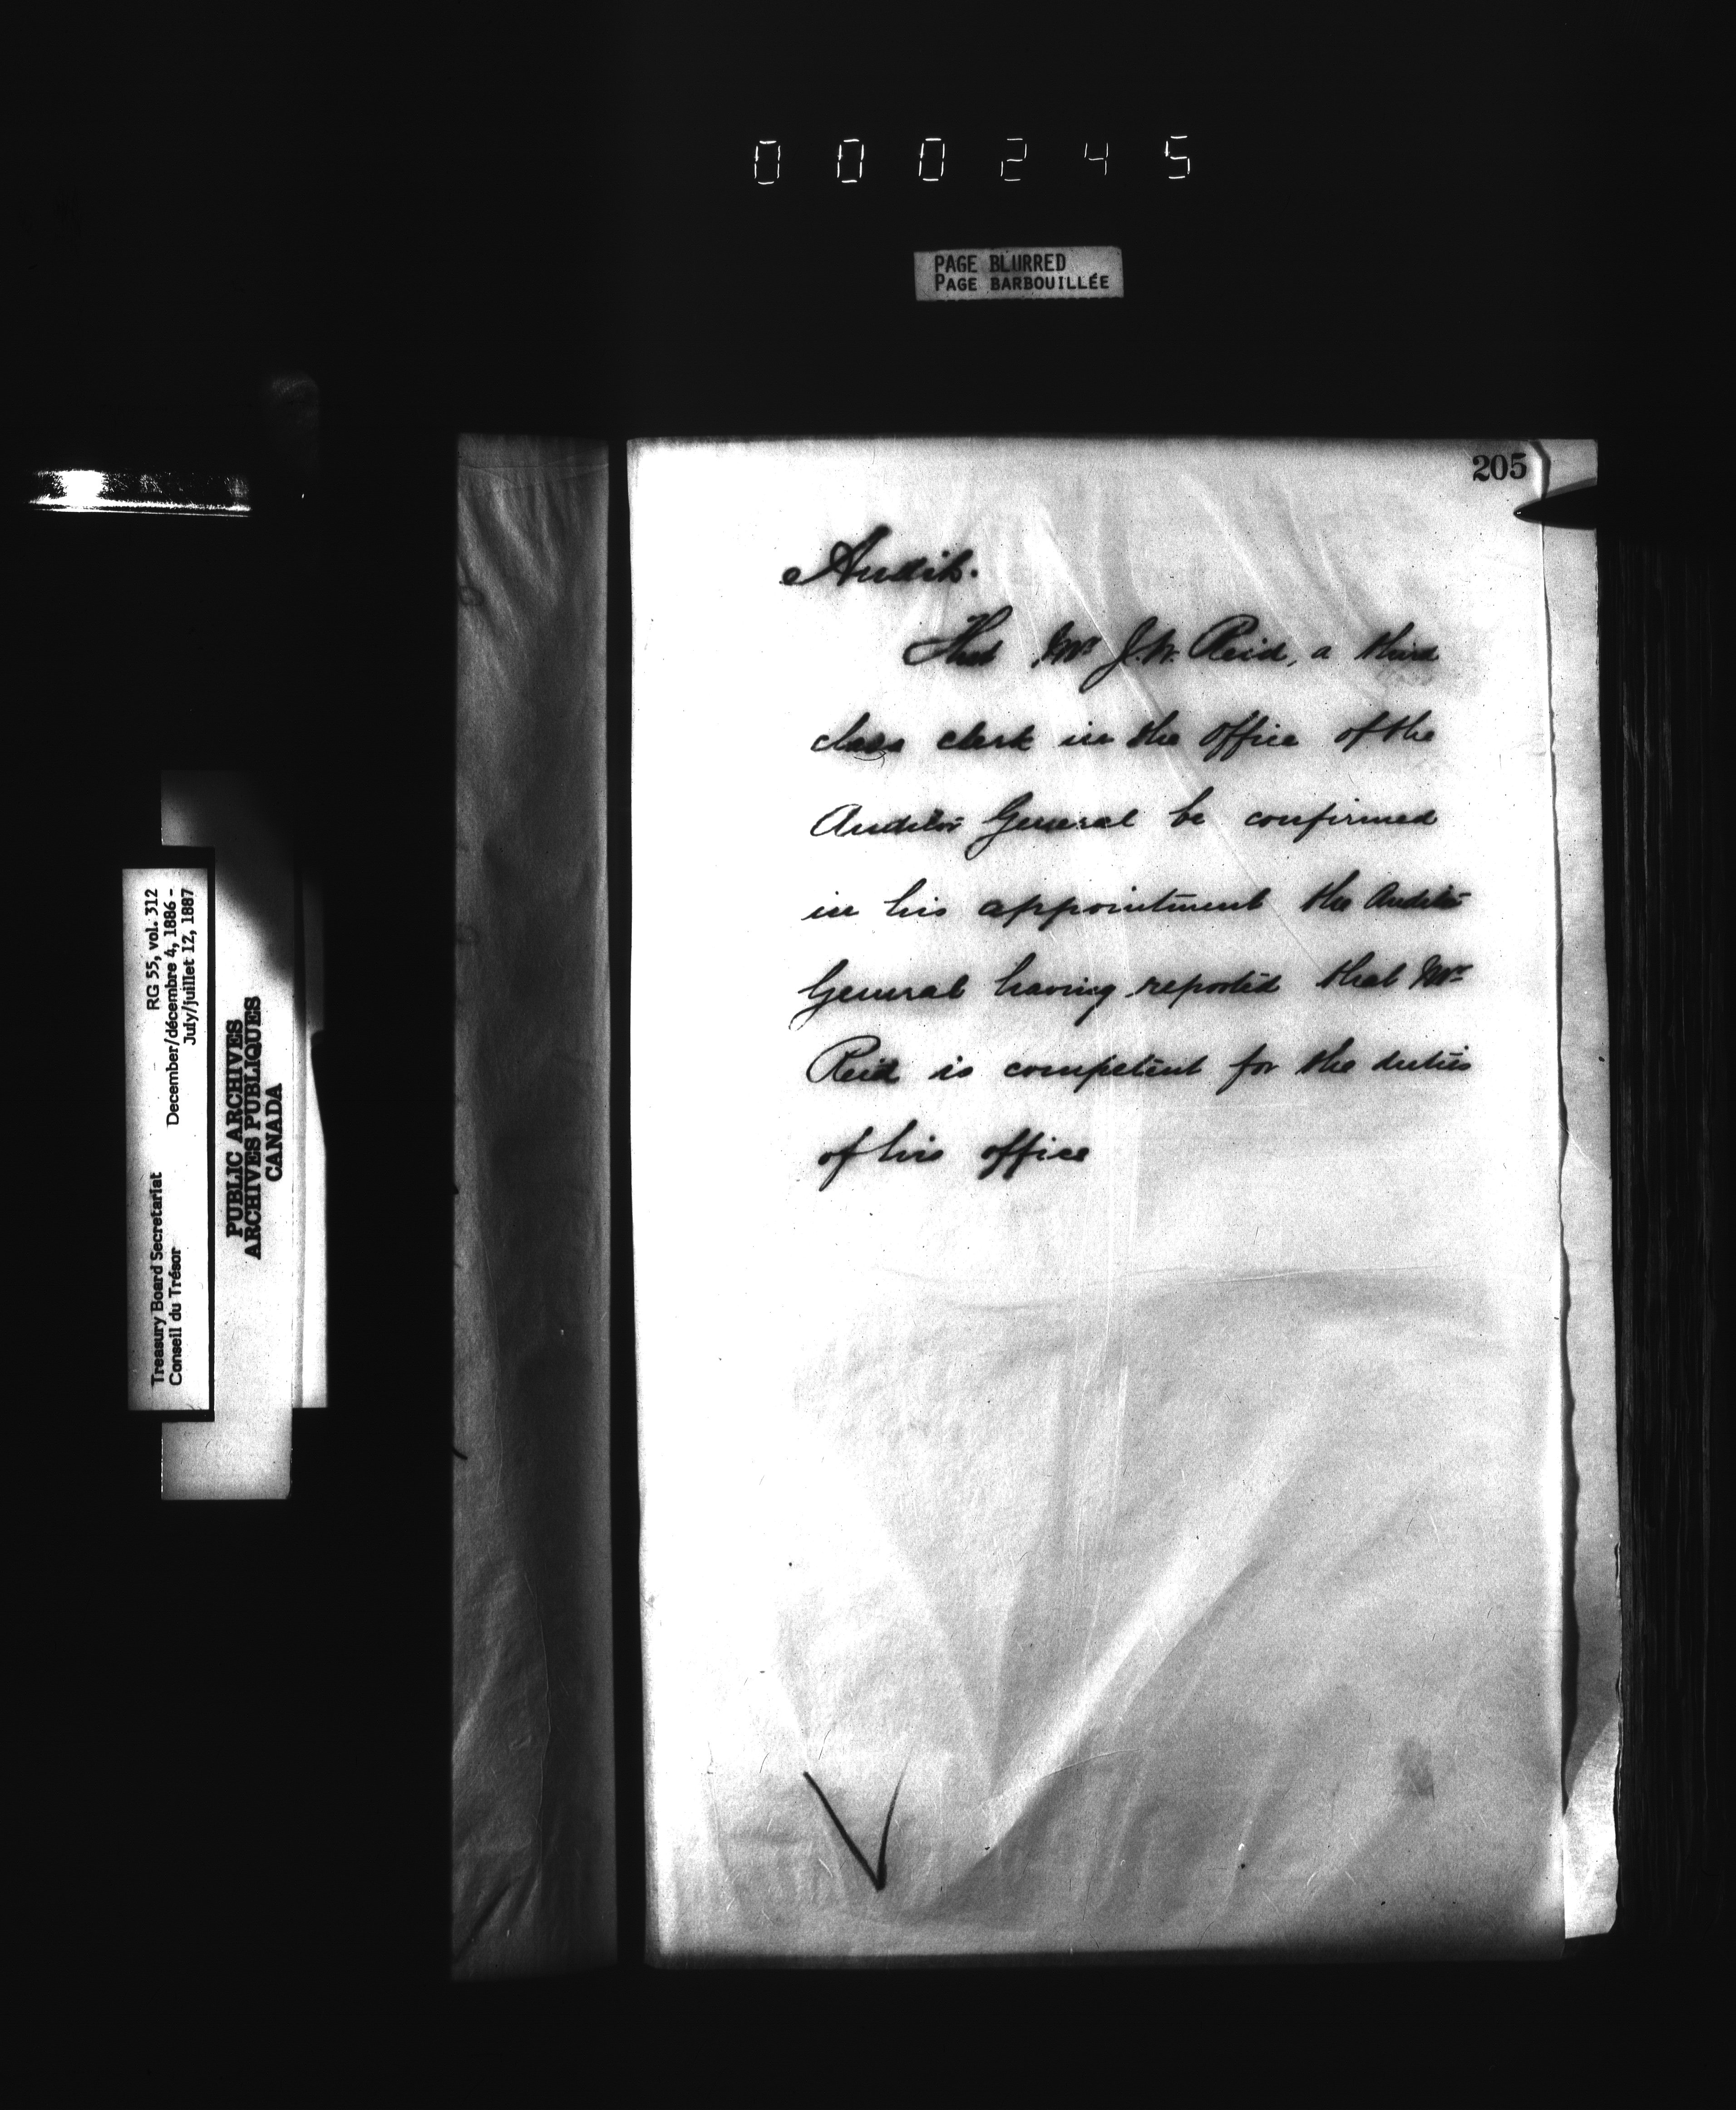 000245
PAGE BLURRED
PAGE BARBOUILLÉE
205
Audit.
That Mr J.W. Reid, a third
class clerk in the office of the
Auditor General be confirmed
in his appointment the Auditor
General having reported that Mr
Reid is competent for the duties
of his office
Treasury Board Secretariat RG 55, vol. 312
Conseil du Trésor December/décembre 4, 1886 -
July/juillet 12, 1887
PUBLIC ARCHIVES
ARCHIVES PUBLIQUES
CANADA